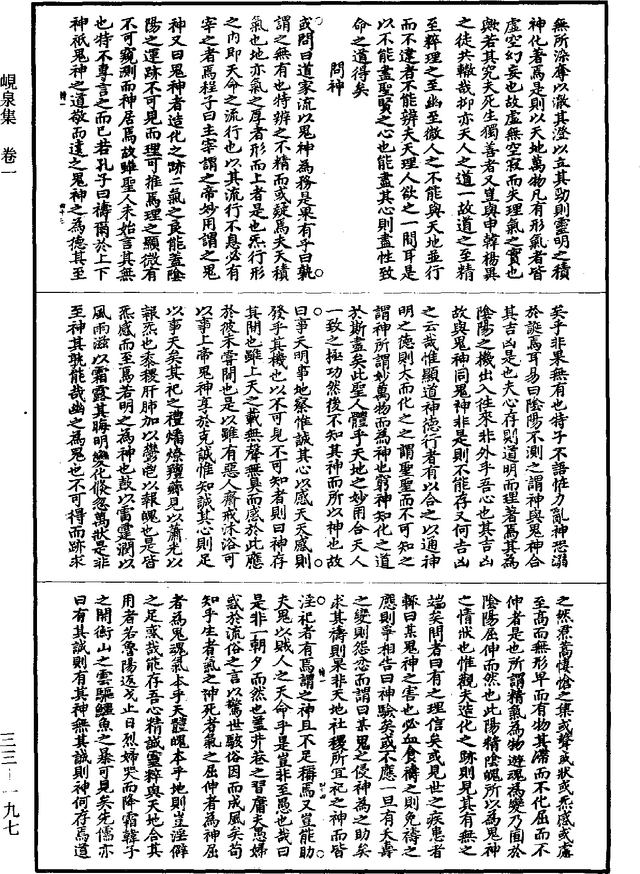 無所染奪以澂其澄以立其功則靈明之積
神化著焉是則以天地萬物凡有形氣者皆
虛空幻妄也故虛無空寂而失理氣之實也
與若其究夫死生獨善者又豈與申韓楊異
之徒共轍哉抑亦天人之道一故道之至精
至粹理之至幽至微人之不能與天地並行
而不違者不能辨夫天理人欲之一間耳是
以不能盡聖賢之心也能盡其心則盡性致
命之道得矣
問神
或問曰道家流以鬼神為務是果有乎曰孰
謂之無有也特辨之不精而或疑焉夫天積
氣也地亦氣之厚者形而上者是也炁行形
之內即天命之流行也以其流行不息必有
宰之者焉程子曰主宰謂之帝妙用謂之鬼
神又曰鬼神者造化之跡二氣之良能蓋陰
陽之運跡不可見而理可推焉理之顯微有
不可窺測而神居焉故雖聖人未始言其無
也特不專言之而已若孔子曰禱爾於上下
神祇鬼神之道敬而遠之鬼神之為德其至
矣乎非果無有也特子不語怪力亂神恐溺
於誕焉耳易曰陰陽不測之謂神與鬼神合
其吉凶是也夫心存則道明而理著焉其為
陰陽之機出入往來非外乎吾心也其吉凶
故與鬼神同鬼神非是則不能存又何吉凶
之云哉惟顯道神德行者有以合之以通神
明之德則大而化之之謂聖聖而不可知之
謂神所謂妙萬物而為神也窮神知化之道
於斯盡矣此聖人體乎天地之妙用合天人
一致之極功然後不知其神而所以神也故
曰事天明事地察惟誠其心以感天天感則
發乎其機也以不可見不可知者則曰神存
其間也雖上天之載無聲無臭而感於此應
於彼未嘗間也是以雖有惡人齋戒沐浴可
以事上帝鬼神享於克誠惟知誠其心則足
以事天矣其祀之禮燔燎羶薌見以蕭光以
報炁也黍稷肝肺加以鬱鬯以報魄也是皆
炁感而至焉若明之為神也鼓以雷霆潤以
風雨滋以霜露其晦明變化倏忽萬狀是非
至神其孰能哉幽之為鬼也不可得而跡求
之然焄蒿悽愴之集或聲或狀或炁感或處
至高而無形卑而有物其滯而不化屈而不
伸者是也所謂精氣為物遊魂為變乃囿於
陰陽屈伸而然也此陽精陰魄所以為鬼神
之情狀也惟觀夫造化之跡則見其有無之
端矣問者曰有之理信矣或見世之疾患者
輒曰某鬼神之害也必血食禱之則免禱之
應則爭相告曰神驗矣或不應一旦有夭壽
之變則怨恣而謂曰某鬼之侵神為之助矣
求其禱則果非天地社稷所宜祀之神而皆
淫祀者有焉謂之神且不足稱焉又豈能助
夫鬼以賊人之天命乎是豈非至愚也哉曰
是非一朝夕而然也蓋井巷之習庸夫愚婦
惑於流俗之言以驚世駭俗因而成風矣苟
知乎生者氣之神死者氣之屈伸者為神屈
者為鬼魂氣本乎天體魄本乎地則豈淫僻
之足惑哉能存吾心精誠靈粹與天地合其
用者若魯陽返戈止日烈婦哭而降霜韓子
之開衡山之雲驅鱷魚之暴可見矣先儒亦
曰有其誠則有其神無其誠則神何存焉道
峴泉集 卷一
三三—一九七